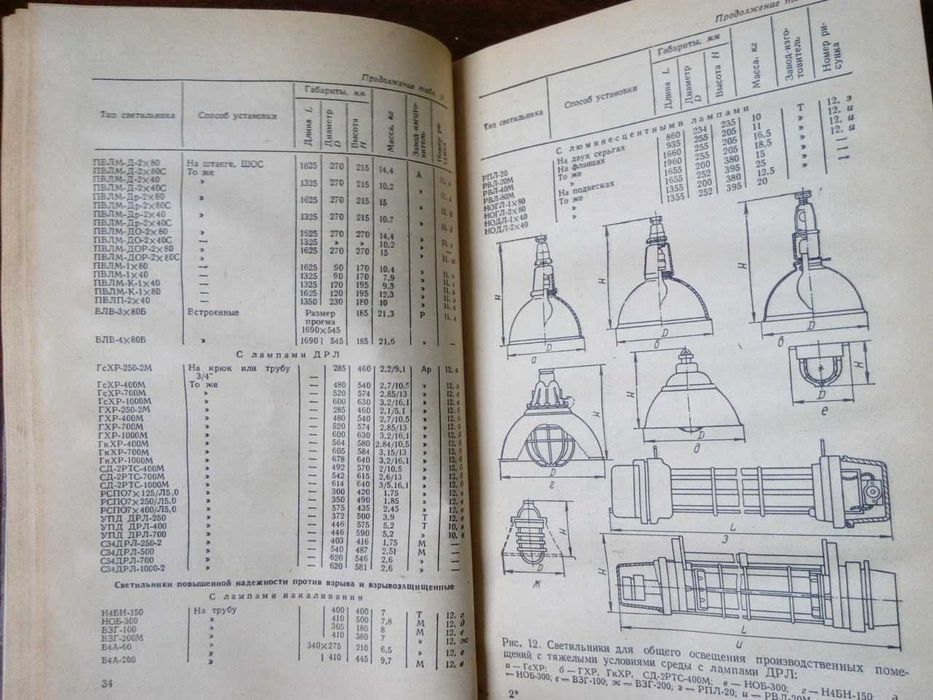 Продолжение табл.
Тип светильника | Способ установки | Габариты, мм | Длина L | Диаметр D | Высота H | Масса, кг | Завод-изготовитель | Номер рисунка
ПВЛМ-Д-2×80 | На штанге, ШОС | 1625 | 270 | 215 | 14,4
ПВЛМ-Д-2×80С | То же | А
ПВЛМ-Д-2×40 | » | 1325 | 270 | 215 | 10,2
ПВЛМ-Д-2×40С
ПВЛМ-Др-2×80 | » | 1625 | 270 | 215 | 15
ПВЛМ-Др-2×80С
ПВЛМ-Др-2×40 | » | 1325 | 270 | 215 | 10,7
ПВЛМ-Др-2×40С
ПВЛМ-ДО-2×80 | » | 1625 | 270 | 270 | 14,4
ПВЛМ-ДО-2×40С | — | 1325 | » | » | 10,2
ПВЛМ-ДОР-2×80 | » | 1625 | 270 | 270 | 15
ПВЛМ-ДОР-2×80С
ПВЛМ-1×80 | — | 1625 | 90 | 170 | 10,4
ПВЛМ-1×40 | — | 1325 | 90 | 170 | 7,9
ПВЛМ-К-1×40 | — | 1325 | 120 | 195 | 9,3
ПВЛМ-К-1×80 | — | 1625 | 120 | 195 | 12,3
ПВЛП-2×40 | — | 1350 | 230 | 180 | 10
ВЛВ-3×80Б | Встроенные | Размер проема 1690×545 | 185 | 21,3 | Р
ВЛВ-4×80Б | » | 1690 | 545 | 185 | 21,6 | » | —
С лампами ДРЛ
ГсХР-250-2М | На крюк или трубу 3/4″ | — | 285 | 460 | 2,2/9,1 | Ар | 12, а
ГсХР-400М | То же | — | 480 | 540 | 2,7/10,5 | » | 12, а
ГсХР-700М | » | — | 520 | 574 | 2,85/13 | » | 12, а
ГсХР-1000М | » | — | 600 | 630 | 3,2/16,1 | » | 12, а
ГХР-250-2М | » | — | 285 | 460 | 2,1/5,1 | » | 12, б
ГХР-400М | » | — | 480 | 540 | 2,7/10,5 | » | 12, б
ГХР-700М | » | — | 520 | 574 | 2,85/13 | » | 12, б
ГХР-1000М | » | — | 600 | 630 | 3,2/16,1 | » | 12, б
ГкХР-400М | » | — | 564 | 580 | 2,84/10,5 | » | 12, б
ГкХР-700М | » | — | 605 | 584 | 3,15/13 | » | 12, б
ГкХР-1000М | » | — | 678 | 640 | 3,2/16,1 | » | 12, б
СД-2РТС-400М | » | — | 492 | 570 | 2/10,5 | » | 12, б
СД-2РТС-700М | » | — | 542 | 615 | 2,6/13 | » | 12, б
СД-2РТС-1000М | » | — | 614 | 640 | 3/5,16,1 | » | 12, б
РСПО7×125/Л5.0 | » | — | 300 | 420 | 1,75 | » | 12, в
РСПО7×250/Л5.0 | » | — | 350 | 490 | 1,85 | » | 12, в
РСПО7×400/Л5.0 | » | — | 575 | 435 | 2,45 | » | 12, в
УПД ДРЛ-250 | » | — | 372 | 500 | 3,9 | Т | 10, в
УПД ДРЛ-400 | » | — | 446 | 575 | 5,2 | Т | 10, в
УПД ДРЛ-700 | » | — | 446 | 590 | 5,2 | » | 10, в
С34ДРЛ-250-2 | » | — | 403 | 416 | 1,75 | М | —
С34ДРЛ-500 | » | — | 540 | 487 | 2,51 | М | —
С34ДРЛ-700 | » | — | 620 | 546 | 2,6 | » | —
С34ДРЛ-1000-2 | » | — | 620 | 581 | 2,6 | М | —
Светильники повышенной надежности против взрыва и взрывозащищенные
С лампами накаливания
Н4БН-150 | На трубу | 400 | 400 | 7 | Т | 12, г
НОБ-300 | » | 410 | 500 | 7,8 | М | 12, д
ВЗГ-100 | » | 305 | 180 | 8 | М | 12, е
ВЗГ-200М | » | 410 | 380 | 7 | » | 12, ж
В4А-60 | » | 340×275 | 210 | 6,5 | » | 12, е
В4А-200 | » | 410 | 445 | 9,7 | М | 12, в
34
Продолжение та
Тип светильника | Способ установки | Габариты, мм | Длина L | Диаметр D | Высота H | Масса, кг | Завод-изготовитель | Номер рисунка
С люминесцентными лампами
РПЛ-20 | На двух серьгах | 860 | 234 | 235 | 10 | Т | 12, з
РВЛ-20М | На фланцах | 935 | 255 | 205 | 11 | » | 12, и
РВЛ-40М | То же | 1660 | 255 | 205 | 16,5 | » | 12, и
РВЛ-80М | » | 1960 | 255 | 205 | 18,5 | » | 12, и
НОГЛ-1×80 | На подвесках | 1655 | 200 | 380 | 15 | » | —
НОГЛ-2×80 | То же | 1655 | 252 | 395 | 25 | » | —
НОДЛ-1×40 | » | 1355 | 200 | 380 | 12,5 | » | —
НОДЛ-2×40 | » | 1355 | 252 | 395 | 20
H D H D H D
а б в
H D H D е
г д
H D ж
L з
L и
Рис. 12. Светильники для общего освещения производственных поме-
щений с тяжелыми условиями среды с лампами ДРЛ:
а — ГсХР; б — ГХР, ГкХР, СД-2РТС-400М; в — НОБ-300; г — Н4БН-150
— НОБ-300; е — ВЗГ-100; ж — ВЗГ-200, з — РПЛ-20; и — РВЛ-20М
2*